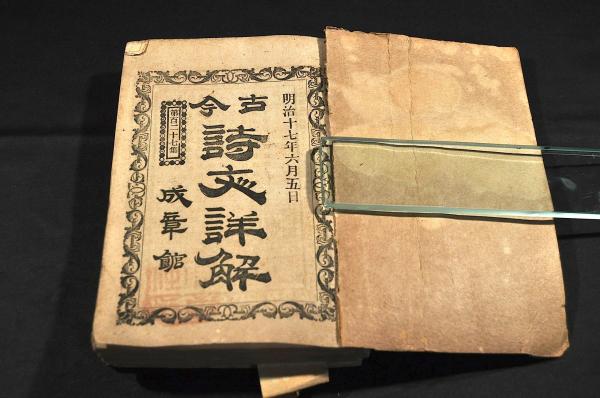 明治十七年六月五日
古今
詩文詳解
第百二十七集
成章館